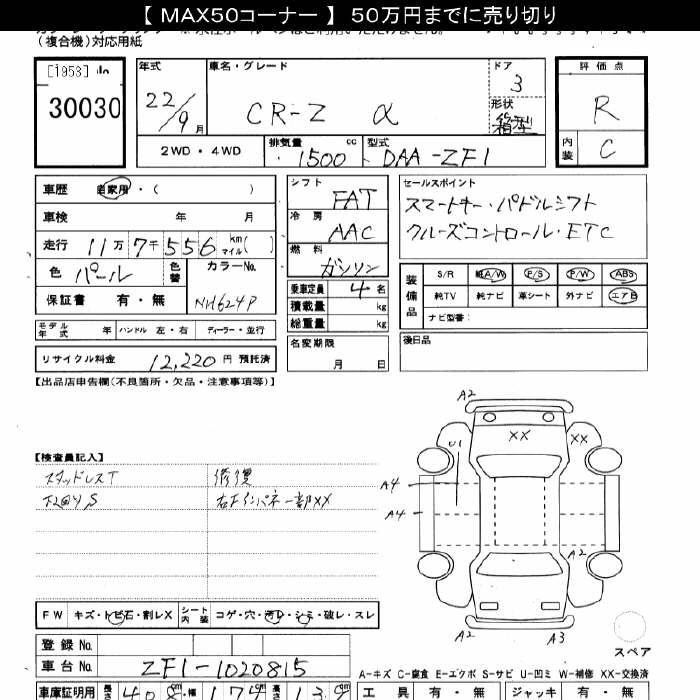 【 MAX50コーナー 】 50万円までに売り切り
(複合機)対応用紙
30030
年式 22/9月
車名・グレード CR-Z α
ドア 3
形状 箱型
評価点 R
内装 C
2WD・4WD
排気量 1500 cc
型式 DAA-ZF1
車歴 自家用・( )
車検 年 月
走行 11万7千556 km マイル( )
色 パール
色替
カラーNo. NH624P
保証書 有・無
シフト FAT
冷房 AAC
燃料 ガソリン
乗車定員 4 名
積載量 kg
総重量 kg
セールスポイント
スマートキー・パドルシフト
クルーズコントロール・ETC
装備品
S/R 純A/W P/S P/W ABS
純TV 純ナビ 革シート 外ナビ エアB
ナビ型番:
モデル年式 年 ハンドル 左・右 ディーラー・並行
名変期限 月 日
後日品
リサイクル料金 12,220 円 預託済
【出品店申告欄(不良箇所・欠品・注意事項等)】
【検査員記入】
スタッドレスT
修復
右Fインパネ一部XX
A2
U1
XX
XX
A4
A4
A2
A2
A3
スペア
FW キズ・トビ石・割レX
シート内装 コゲ・穴・キレ・シミ・破レ・スレ
登録No.
車台No. ZF1-1020815
A-キズ C-腐食 E-エクボ S-サビ U-凹ミ W-補修 XX-交換済
車庫証明用 長さ 408 cm・幅 174 cm 高さ
工具 有・無 ジャッキ 有・無